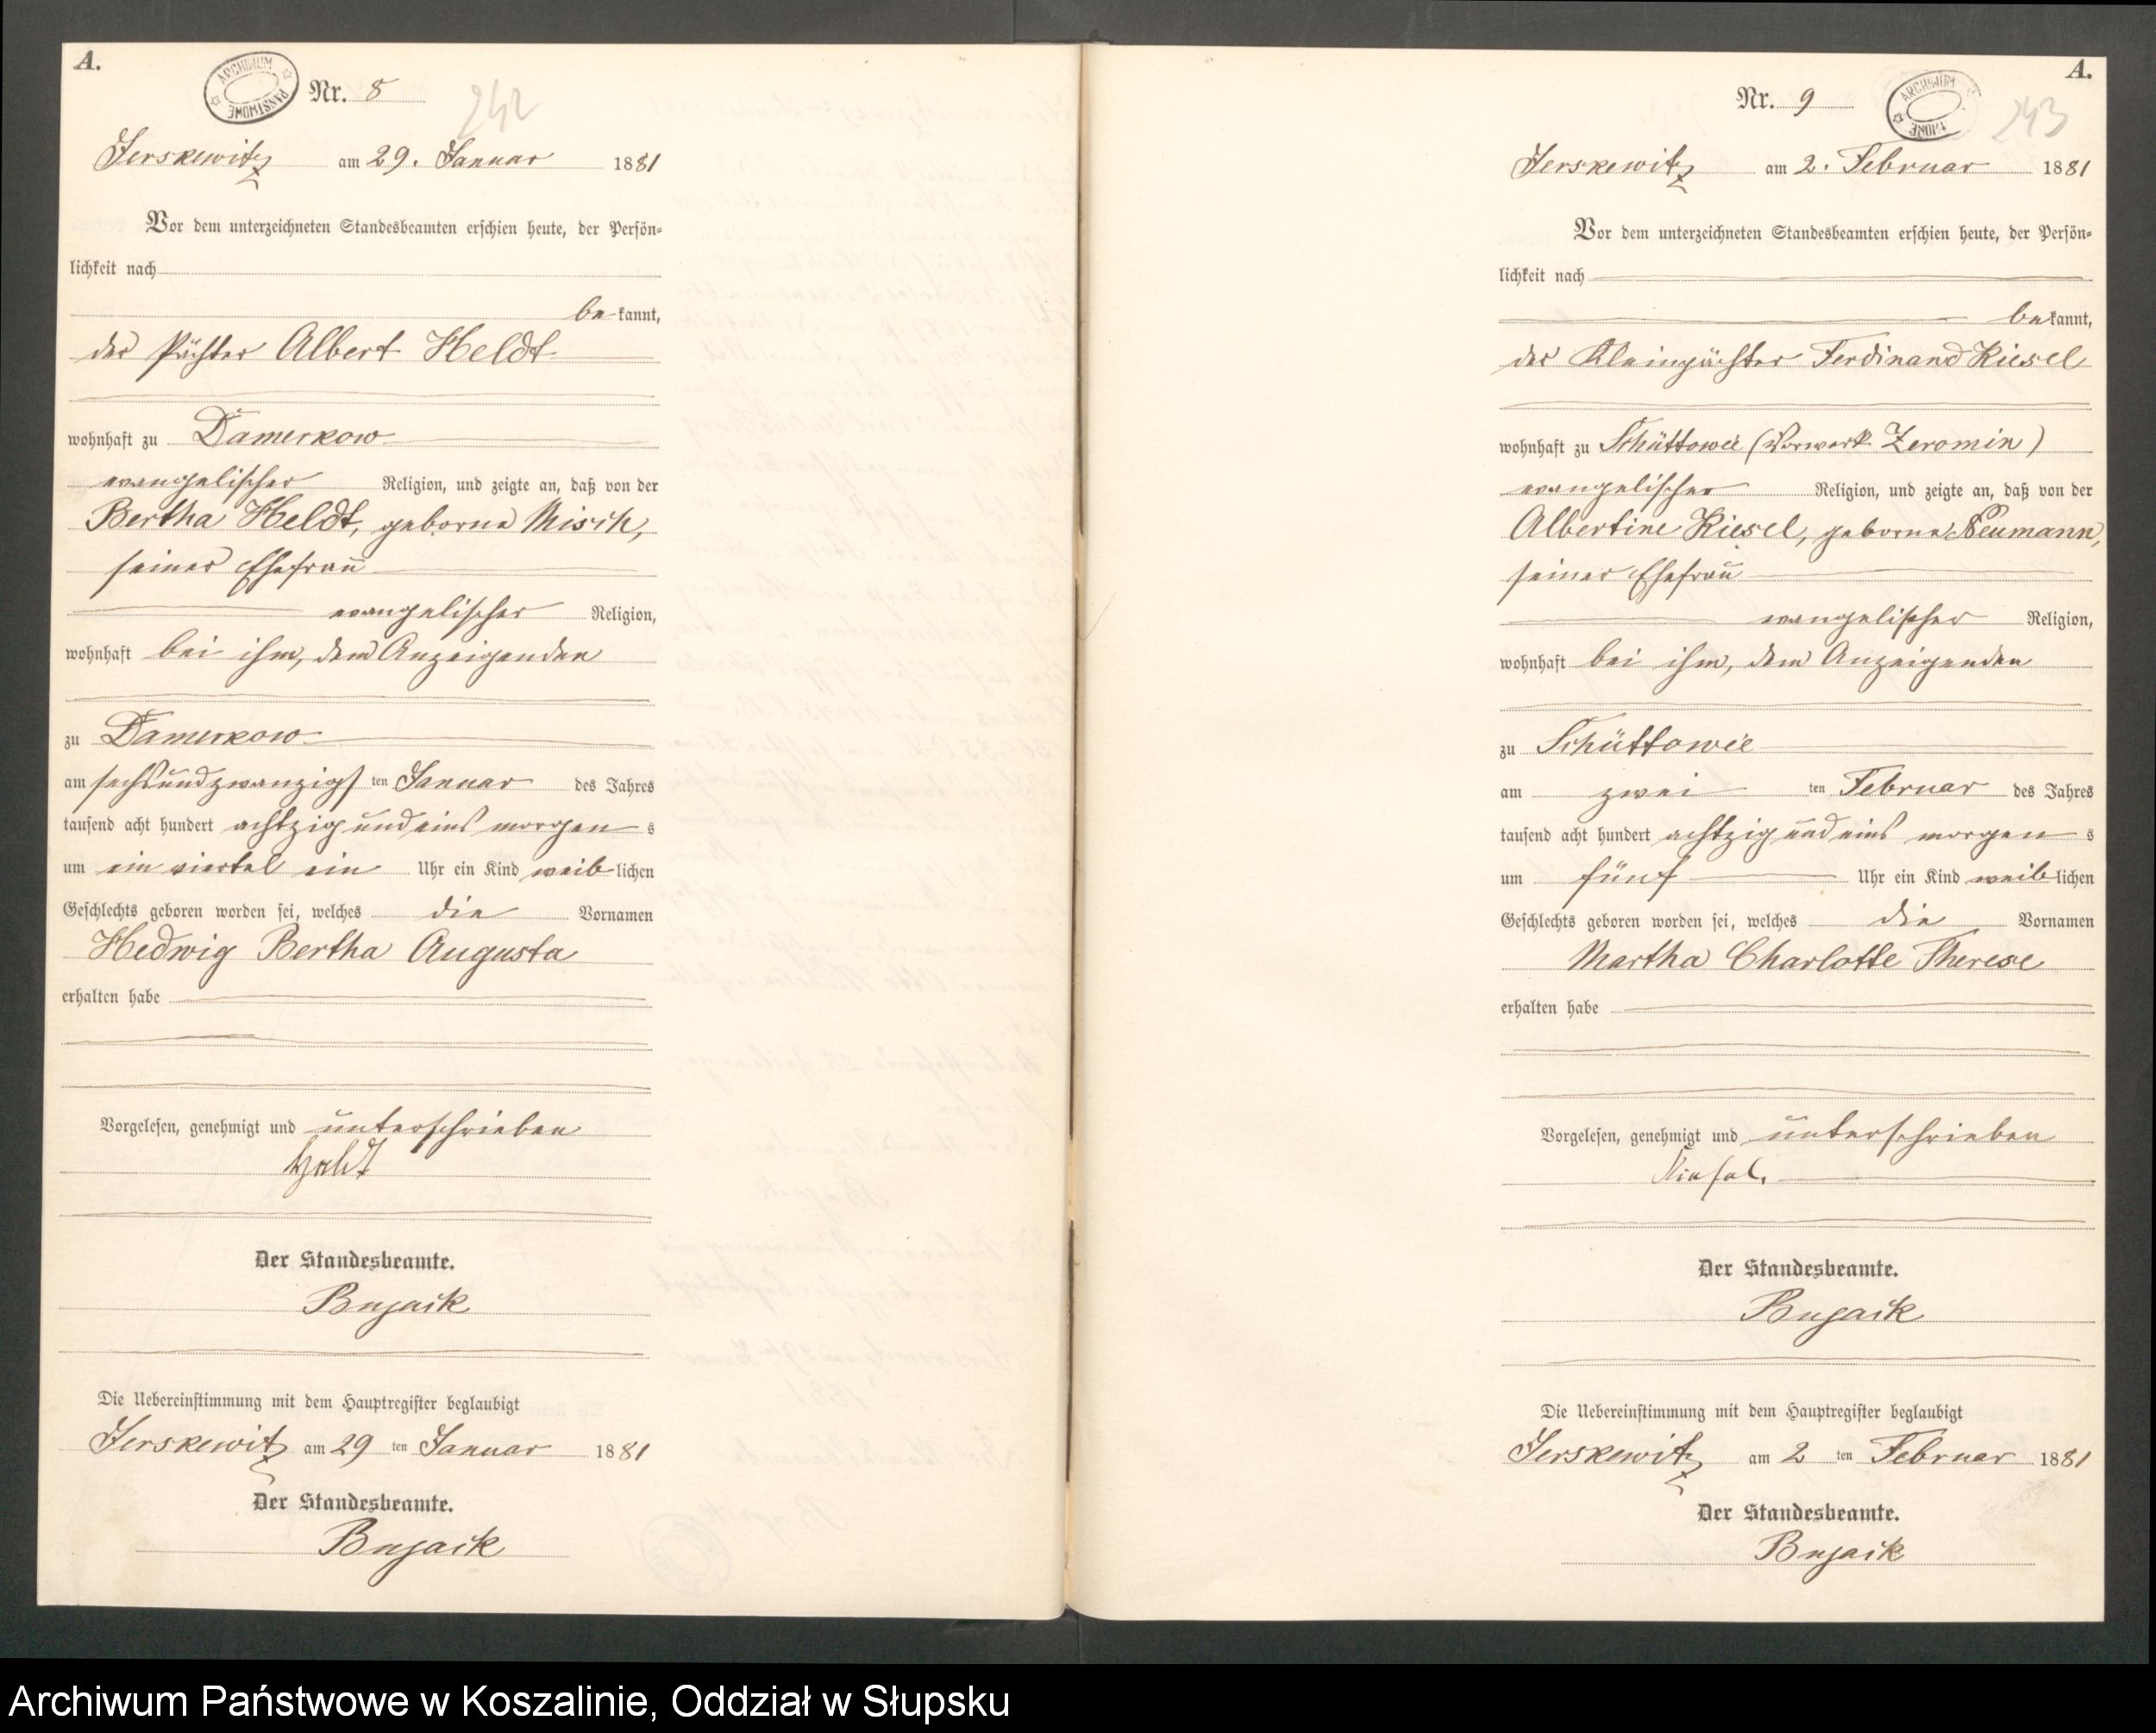 A.
ARCHIWUM PAŃSTWOWE
Nr. 8
242
Jerskewitz am 29. Januar 1881
Vor dem unterzeichneten Standesbeamten erschien heute, der Persön-
lichkeit nach
be kannt,
der Pächter Albert Heldt
wohnhaft zu Damerkow
evangelischer Religion, und zeigte an, daß von der
Bertha Heldt, geborne Misch,
seiner Ehefrau
evangelischer Religion,
wohnhaft bei ihm, dem Anzeigenden
zu Damerkow
am sechsundzwanzigs ten Januar des Jahres
tausend acht hundert achtzig und eins morgen s
um ein viertel ein Uhr ein Kind weib lichen
Geschlechts geboren worden sei, welches die Vornamen
Hedwig Bertha Augusta
erhalten habe
Vorgelesen, genehmigt und unterschrieben
Heldt
Der Standesbeamte.
Bujack
Die Uebereinstimmung mit dem Hauptregister beglaubigt
Jerskewitz am 29 ten Januar 1881
Der Standesbeamte.
Bujack
A.
Nr. 9
ARCHIWUM
243
Jerskewitz am 2. Februar 1881
Vor dem unterzeichneten Standesbeamten erschien heute, der Persön-
lichkeit nach
be kannt,
der Kleinpächter Ferdinand Kiesel
wohnhaft zu Schüttowie (Vorwerk Zeromin)
evangelischer Religion, und zeigte an, daß von der
Albertine Kiesel, geborne Neumann,
seiner Ehefrau
evangelischer Religion,
wohnhaft bei ihm, dem Anzeigenden
zu Schüttowie
am zwei ten Februar des Jahres
tausend acht hundert achtzig und eins morgen s
um fünf Uhr ein Kind weib lichen
Geschlechts geboren worden sei, welches die Vornamen
Martha Charlotte Therese
erhalten habe
Vorgelesen, genehmigt und unterschrieben
Kiesel.
Der Standesbeamte.
Bujack
Die Uebereinstimmung mit dem Hauptregister beglaubigt
Jerskewitz am 2 ten Februar 1881
Der Standesbeamte.
Bujack
Archiwum Państwowe w Koszalinie, Oddział w Słupsku